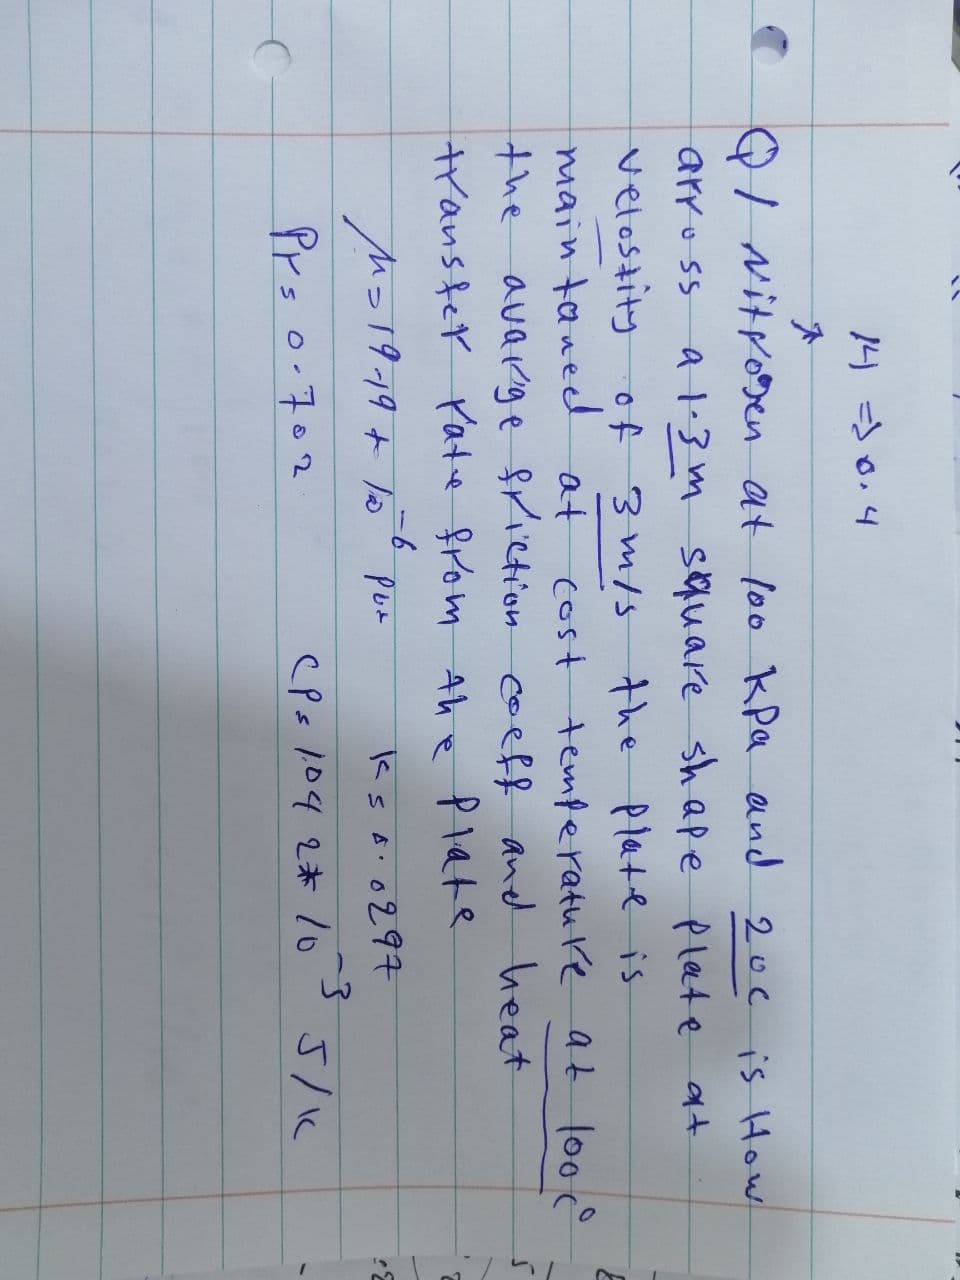 14 => 0.4
Q/ Nitrogen at 100 kPa and 20c is How
arross a 1.3m square shape plate at
velosity of 3 m/s the plate is
maintaned at cost temperature at 100c°
the avarge friction coeff and heat
transfer rate from the plate
μ = 19.19 * 10^-6 k = 0.0297
Pr = 0.702 CP = 1.042 * 10^-3 J/k